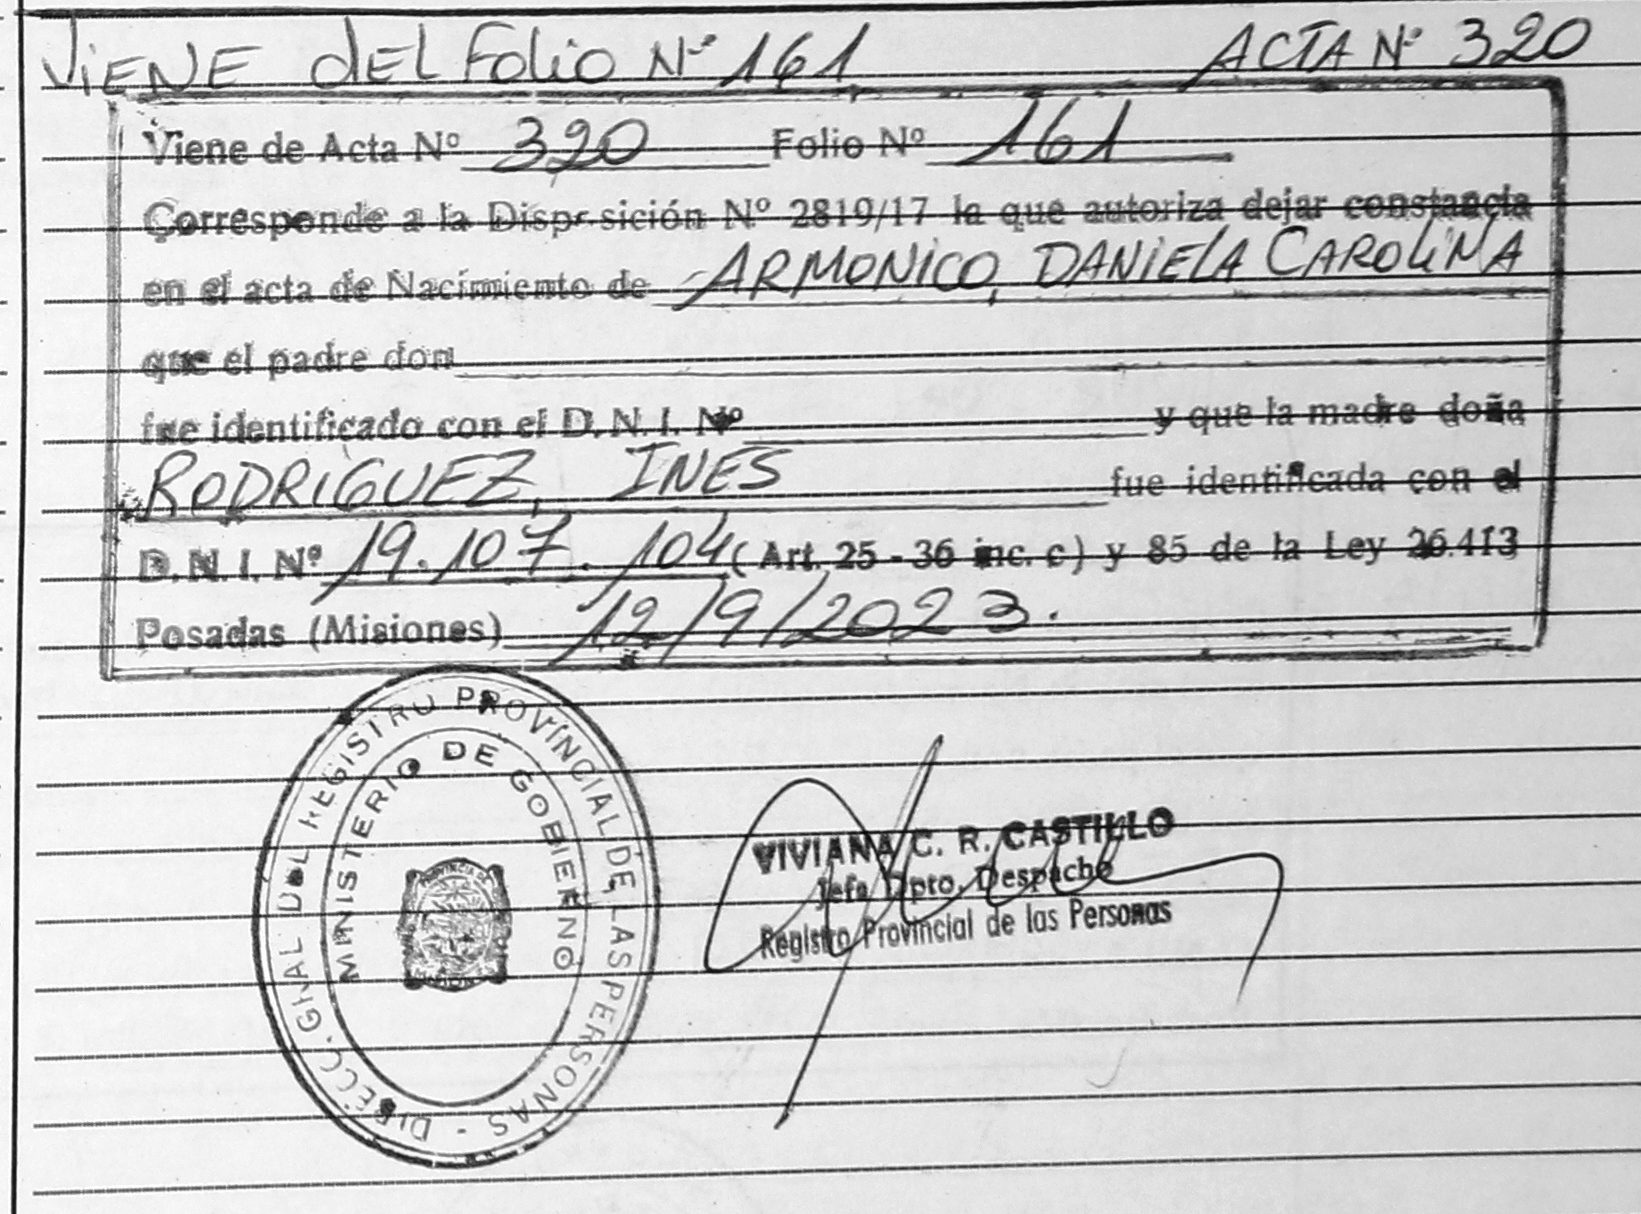 ViENE dEL Folio Nº 161 ACTA Nº 320
Viene de Acta Nº 320 Folio Nº 161
Corresponde a la Disposición Nº 2819/17 la que autoriza dejar constancia
en el acta de Nacimiento de ARMONICO, DANIELA CAROLINA
que el padre don
fue identificado con el D.N.I. Nº y que la madre doña
RODRIGUEZ, INES fue identificada con el
D.N.I. Nº 19.107.104 (Art. 25 - 36 inc. c) y 85 de la Ley 26.413
Posadas (Misiones) 12/9/2023.
DIRECC. GRAL DEL REGISTRO PROVINCIAL DE LAS PERSONAS -
MINISTERIO DE GOBIERNO
VIVIANA C. R. CASTILLO
Jefa Dpto. Despacho
Registro Provincial de las Personas